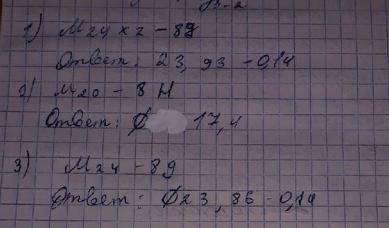 1) М24 х 2 - 8g
Ответ: 23,93 - 0,14
2) М20 - 8Н
Ответ: Ø 17,4
3) М24 - 8g
Ответ: Ø23,86 - 0,14